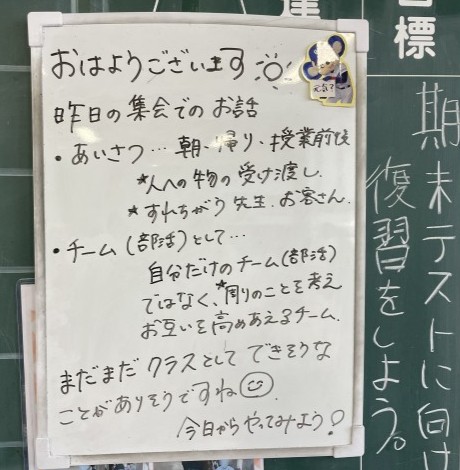 おはようございます
昨日の集会でのお話
・あいさつ…朝・帰り・授業前後
★人への物の受け渡し.
★すれちがう先生.お客さん.
・チーム(部活)として…
自分だけのチーム(部活)
ではなく、★周りのことを考え
お互いを高めあえるチーム.
まだまだクラスとしてできそうな
ことがありそうですね
今日からやってみよう!
元気?
目標
期末テストに向け
復習をしよう。